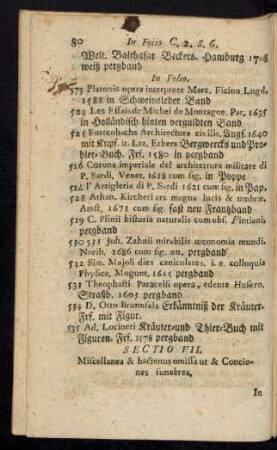 80 In Folio C. 2. S. 6.
Welt. Balthasar Beckers. Hamburg 1708
weiß pergband
In Folio.
523 Platonis opera interprete Mars. Ficino. Lugd.
1588 in Schweinsleder Band
524 Les Essais de Michel de Montagne, Par. 1635
in Holländisch hinten verguldten Band
525 Furtenbachs Architectura civilis, Augs. 1640
mit Kupf. it. Laz. Erkers Bergwercks und Pro-
bier-Buch. Frf. 1580 in pergband
526 Corona imperiale del architettura militare di
P. Sardi, Venet. 1618 cum fig. in Pappe
527 l'Artigleria di P. Sardi 1621 cum fig. in Pap.
528 Athan. Kircheri ars magna lucis & umbræ,
Amst. 1671 cum fig. fast neu Frantzband
529 C. Plinii historia naturalis cum obs. Pintiani,
pergband
530 531 Joh. Zahnii mirabilis œconomia mundi.
Norib. 1686 cum fig. æn. pergband
532 Sim. Majoli dies caniculares, i. e. colloquia
Physica, Mogunt. 1615 pergband
533 Theophasti Paracelsi opera, edente Husero.
Straßb. 1603 pergband
534 D. Otto Brunnfels Erkänntniß der Kräuter-
Frf. mit Figur.
535 Ad. Locineri Kräuter-und Thier-Buch mit
Figuren. Frf. 1578 pergband
SECTIO VII.
Miscellanea & hactenus omissa ut & Concio-
nes funebres.
In